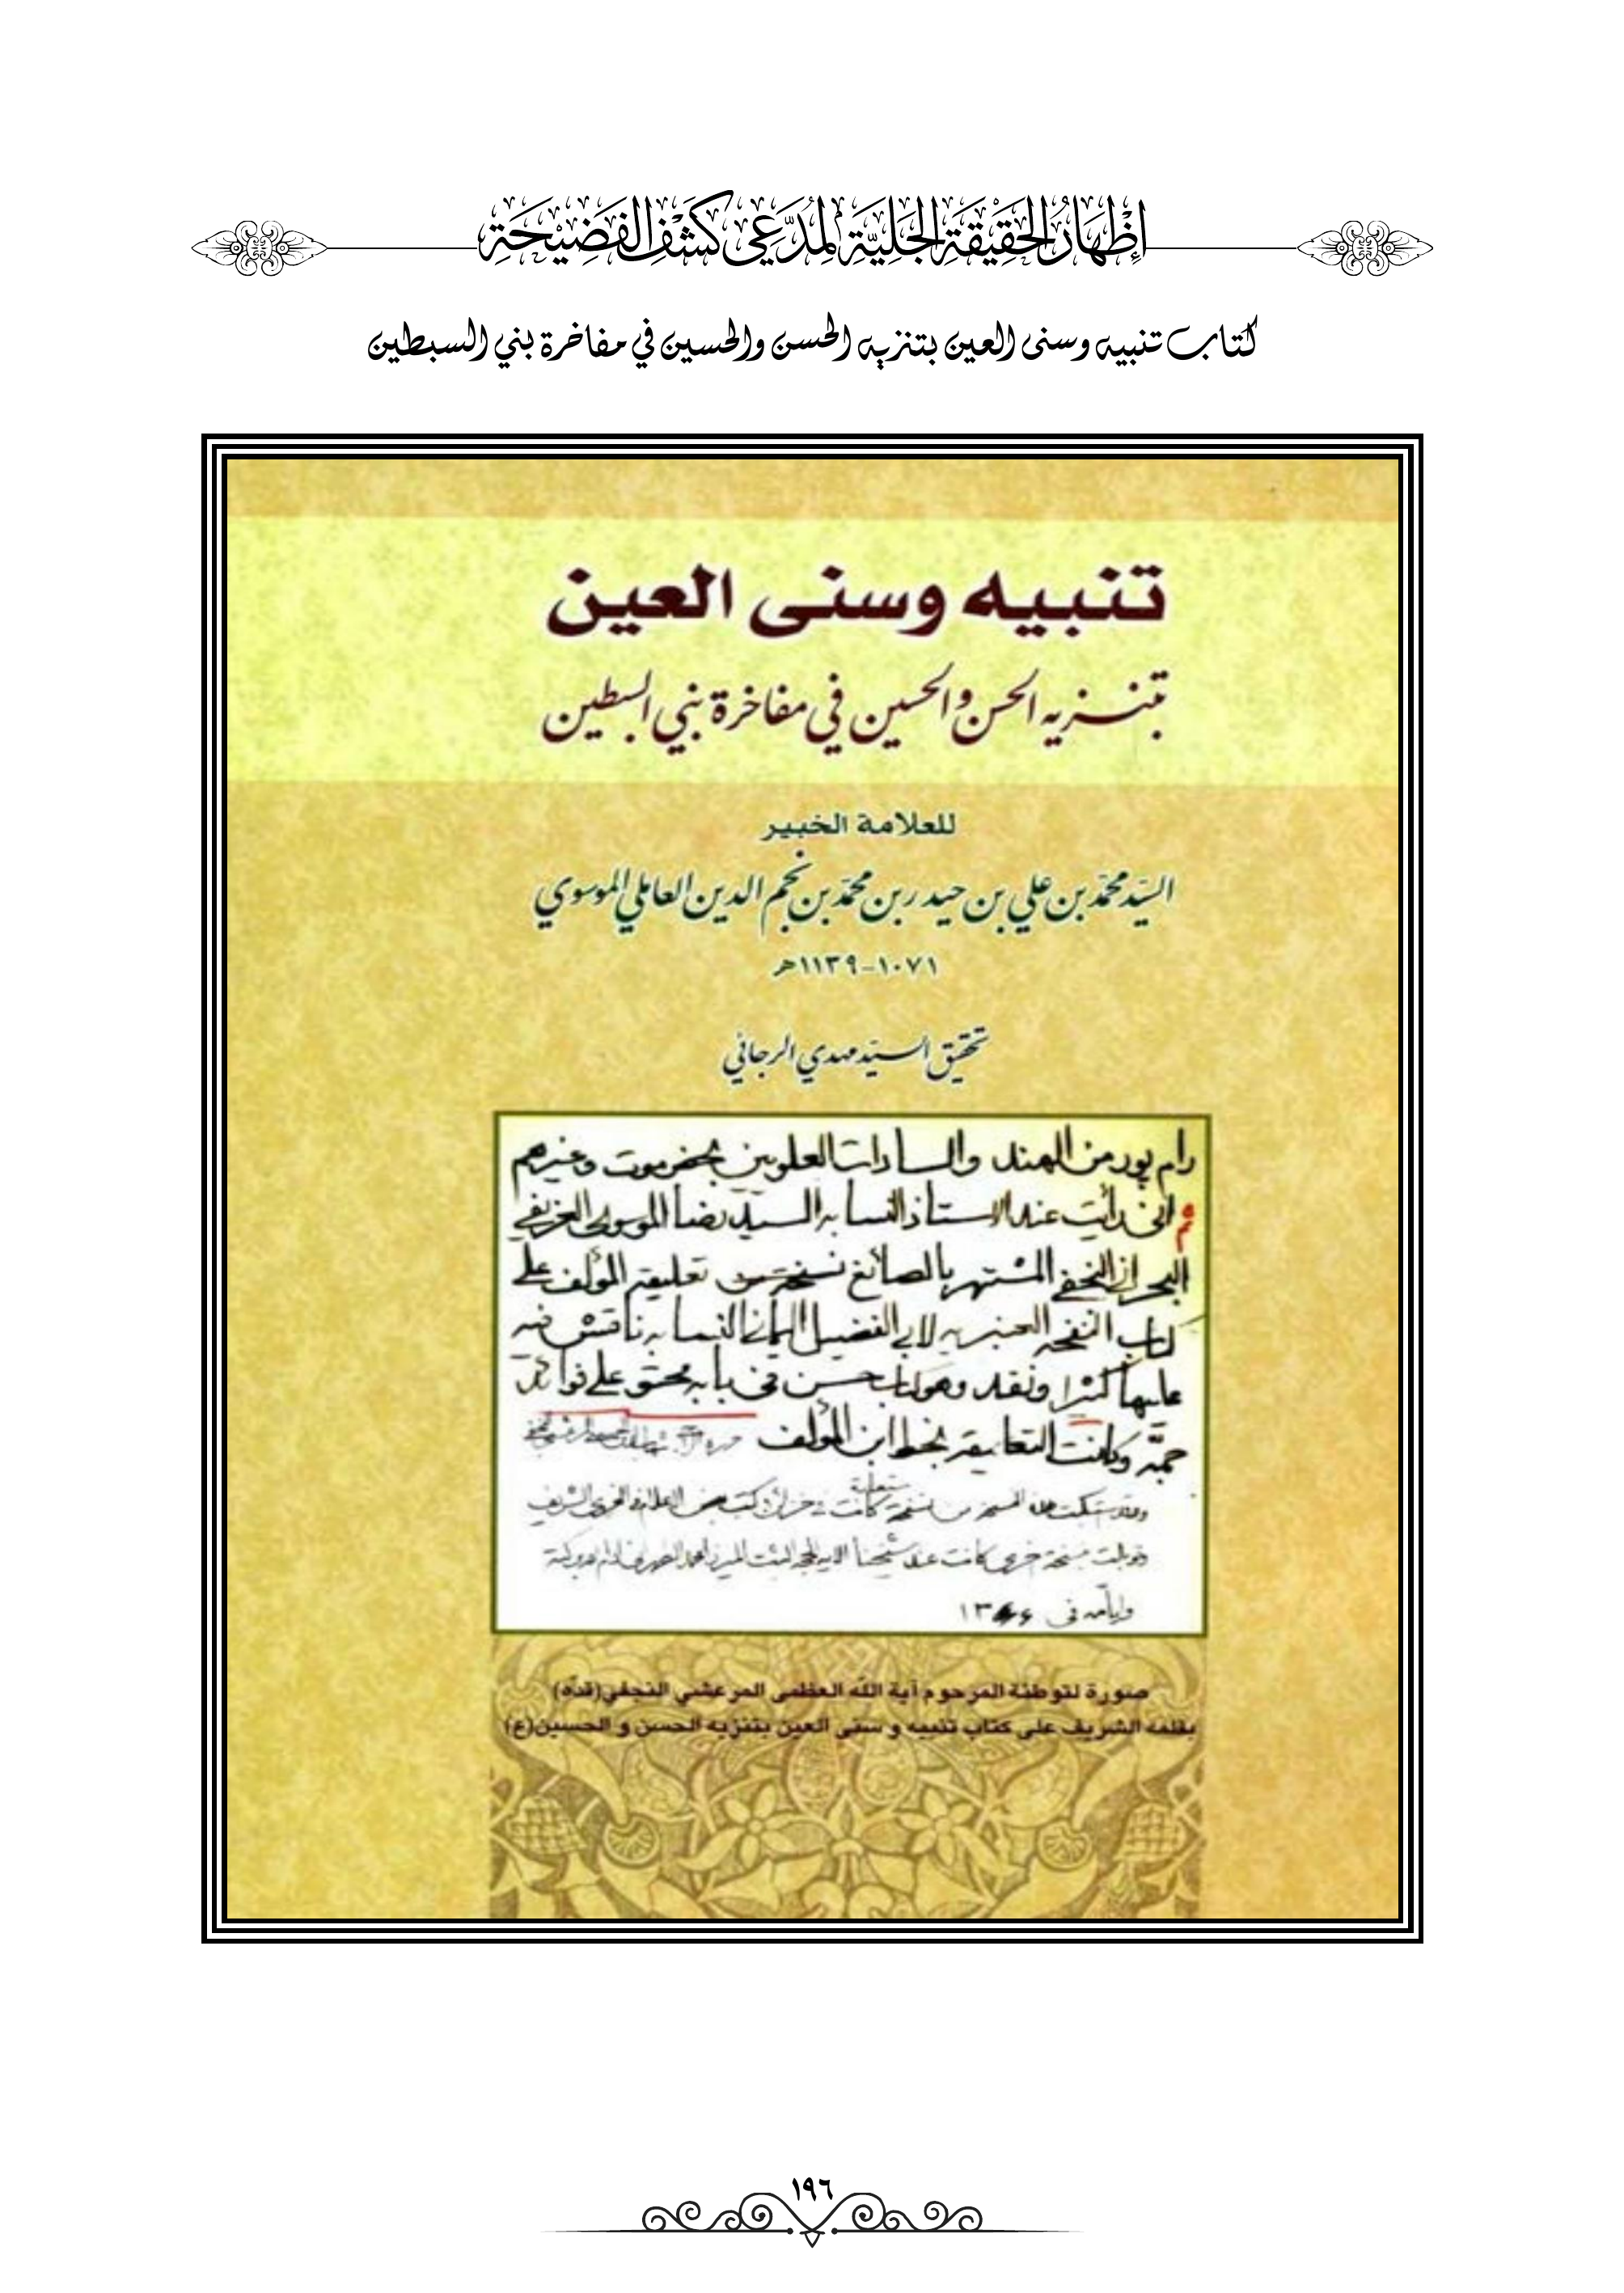 إِظْهَارُ الحَقِيْقَةِ الجَلِيَّةِ لِمُدَّعِي كَشْفِ الفَضِيْحَةِ
كتاب تنبيه وسنى العين بتنزيه الحسن والحسين في مفاخرة بني السبطين
تنبيه وسنى العين
بتنزيه الحسن والحسين في مفاخرة بني السبطين
للعلامة الخبير
السيّد محمّد بن علي بن حيدر بن محمّد بن نجم الدين العاملي الموسوي
١٠٧١-١١٣٩هـ
تحقيق السيّد مهدي الرجائي
رام پور من الهند والسادات العلويين بحضرموت وغيرهم
ثم انى رأيت عند الاستاذ النسابه السيد رضا الموسوى الغريفي
البحرانى النجفي المشتهر بالصائغ نسخة من تعليقة المؤلف على
كتاب النفحه العنبريه لابي الفضيل اليمانى النسابه ناقش فيه
عليها كثيرا ونقد وهو كتاب حسن فى بابه محتو على فوائد
جمّة وكانت التعليقة بخط ابن المؤلف
من نسخة كانت
كانت عند شيخنا
وايامه فى
صورة لتوطئة المرحوم آية الله العظمى المرعشي النجفي(قدّه)
بقلمه الشريف على كتاب تنبيه و سنى العين بتنزيه الحسن و الحسين(ع)
١٩٦